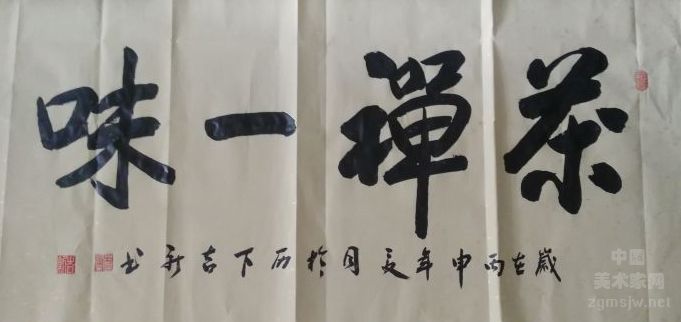 茶禪一味
歲在丙申年夏月於下吉新书
中国
美术家网
zgmsjw.net